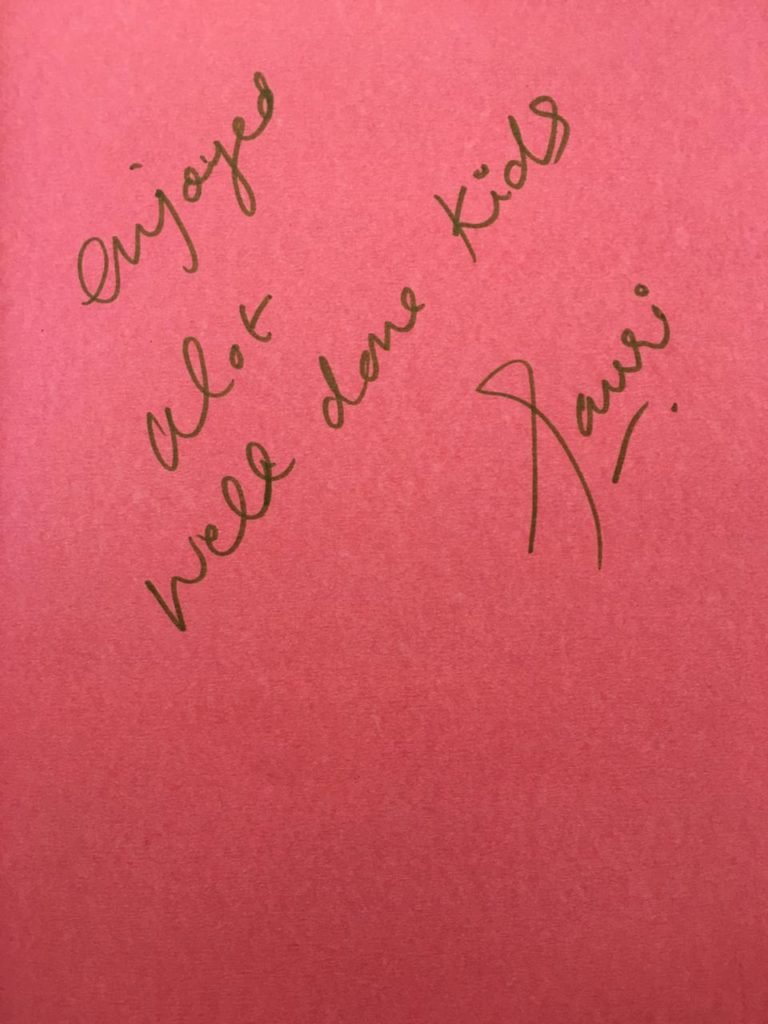 enjoyed
alot
well done kids